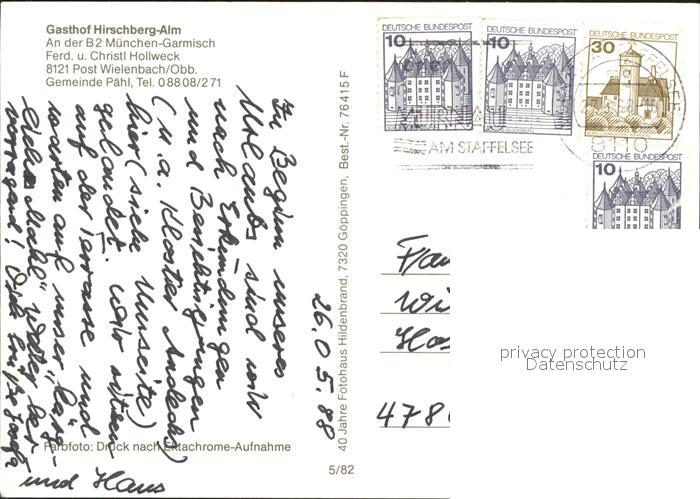 Gasthof Hirschberg-Alm
An der B2 München-Garmisch
Ferd. u. Christl Hollweck
8121 Post Wielenbach/Obb.
Gemeinde Pähl, Tel. 08808/271
Zu Beginn unseres
Urlaubs sind wir
nach Erkundungen
und Besichtigungen
(u.a. Kloster Andechs)
hier (siehe Umseite)
gelandet. Wir sitzen
auf der Terrasse und
warten auf unser
Mahl". Wetter her-
vorragend!
und Hans
26.05.88
40 Jahre Fotohaus Hildenbrand, 7320 Göppingen, Best.-Nr. 76415 F
Farbfoto: Druck nach Ektachrome-Aufnahme
5/82
DEUTSCHE BUNDESPOST
10
DEUTSCHE BUNDESPOST
10
DEUTSCHE BUNDESPOST
30
DEUTSCHE BUNDESPOST
10
MURNAU
AM STAFFELSEE
8110
Wi
478
privacy protection
Datenschutz